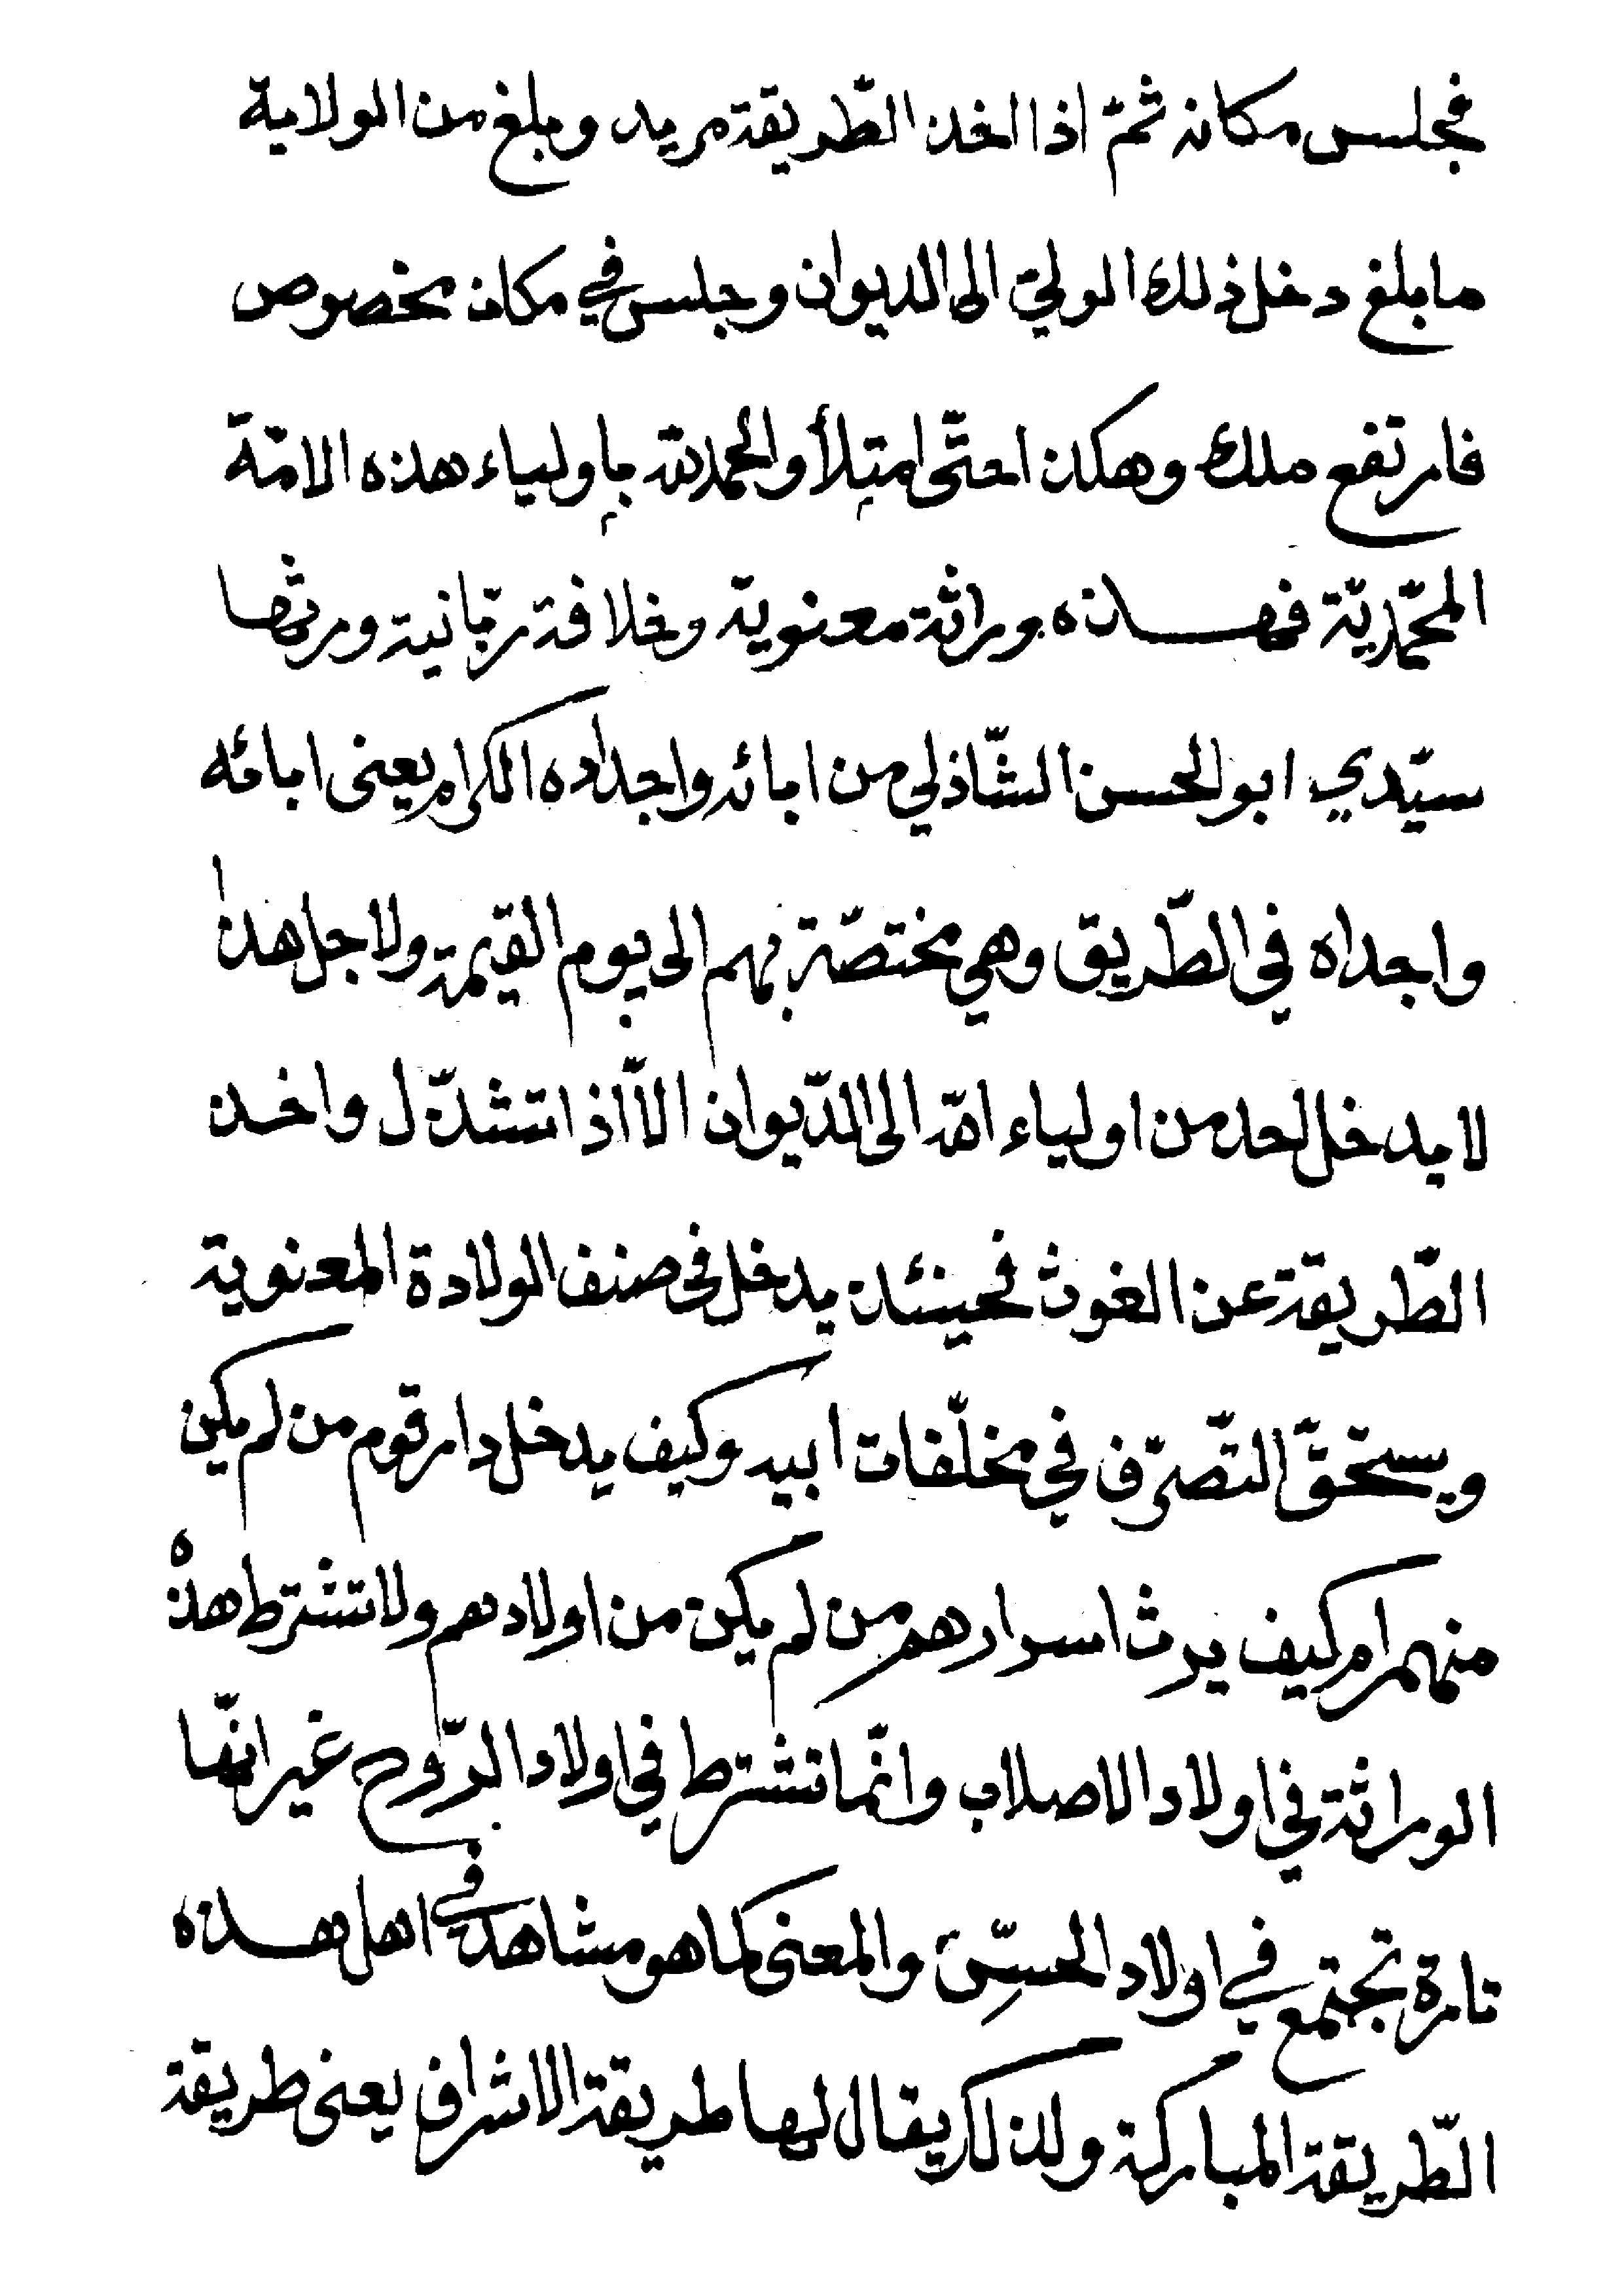 فجلس مكانه ثمّ اذا اخذ الطّريقة مريد وبلغ من الولاية
ما بلغ دخل ذلك الوليّ الى الديوان وجلس في مكان مخصوص
فارتفع ملك وهكذا حتّى امتلأ والحمد لله بأولياء هذه الامّة
المحّمديّة فهذه وراثة معنوية وخلافة ربّانية ورثها
سيّدي ابو الحسن الشّاذلي من ابائه واجداده الكرام يعنى ابائه
واجداه في الطّريق وهي مختصّة بهم الى يوم القيمة ولاجل هذا
لا يدخل احد من اولياء الله الى الدّيوان الاّ اذا تشذّل واخذ
الطّريقة عن الغوث فحينئذ يدخل فى صنف الولادة المعنوية
ويستحقّ التّصرّف في مخلّفات ابيه وكيف يدخل دار قوم من لم يكن
منهم ام كيف يرث اسرارهم من لم يكن من اولادهم ولا تشترط هذه
الوراثة في اولاد الاصلاب وانّما تشترط في اولاد الرّوح غير انّها
تارة تجتمع في اولاد الحسّ والمعنى كما هو مشاهد في اهل هذه
الطّريقة المباركة ولذلك يقال لها طريقة الاشراف يعنى طريقة